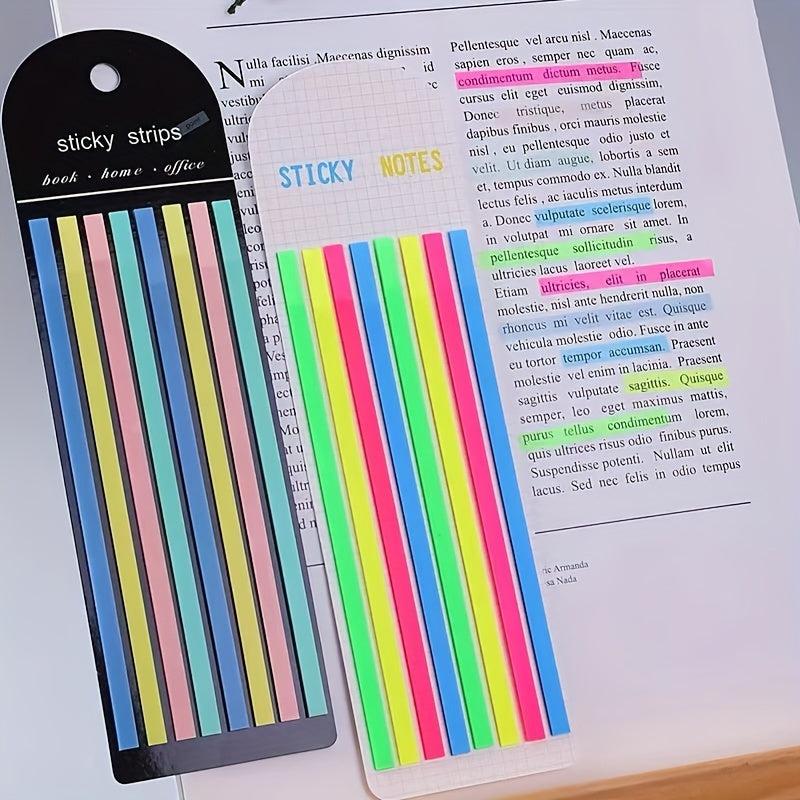 sticky strips
book · home · office
STICKY NOTES
Nulla facilisi .Maecenas dignissim
mi
id
vestibu
Pellentesque vel arcu nisl . Maecenas
sapien eros , semper nec quam ac,
condimentum dictum metus. Fusce
cursus elit eget euismod dignissim,
Donec tristique, metus placerat
dapibus finibus , orci mauris molestie
nisl , eu pellentesque odio justo et
velit. Ut diam augue, lobortis a sem
et, tempus commodo ex. Nulla blandit
lectus felis , ac iaculis metus interdum
a. Donec vulputate scelerisque lorem,
in volutpat mi ornare sit amet. In
pellentesque sollicitudin risus, a
ultricies lacus laoreet vel.
Etiam ultricies, elit in placerat
molestie, nisl ante hendrerit nulla, non
rhoncus mi velit vitae est. Quisque
vehicula molestie odio. Fusce in ante
eu tortor tempor accumsan. Praesent
molestie vel enim in lacinia. Praesent
sagittis vulputate sagittis. Quisque
semper, leo eget maximus mattis,
purus tellus condimentum lorem,
quis ultrices risus odio finibus purus.
Suspendisse potenti. Nullam ut elit
lacus. Sed nec felis in odio tempus
ric Armanda
sa Nada